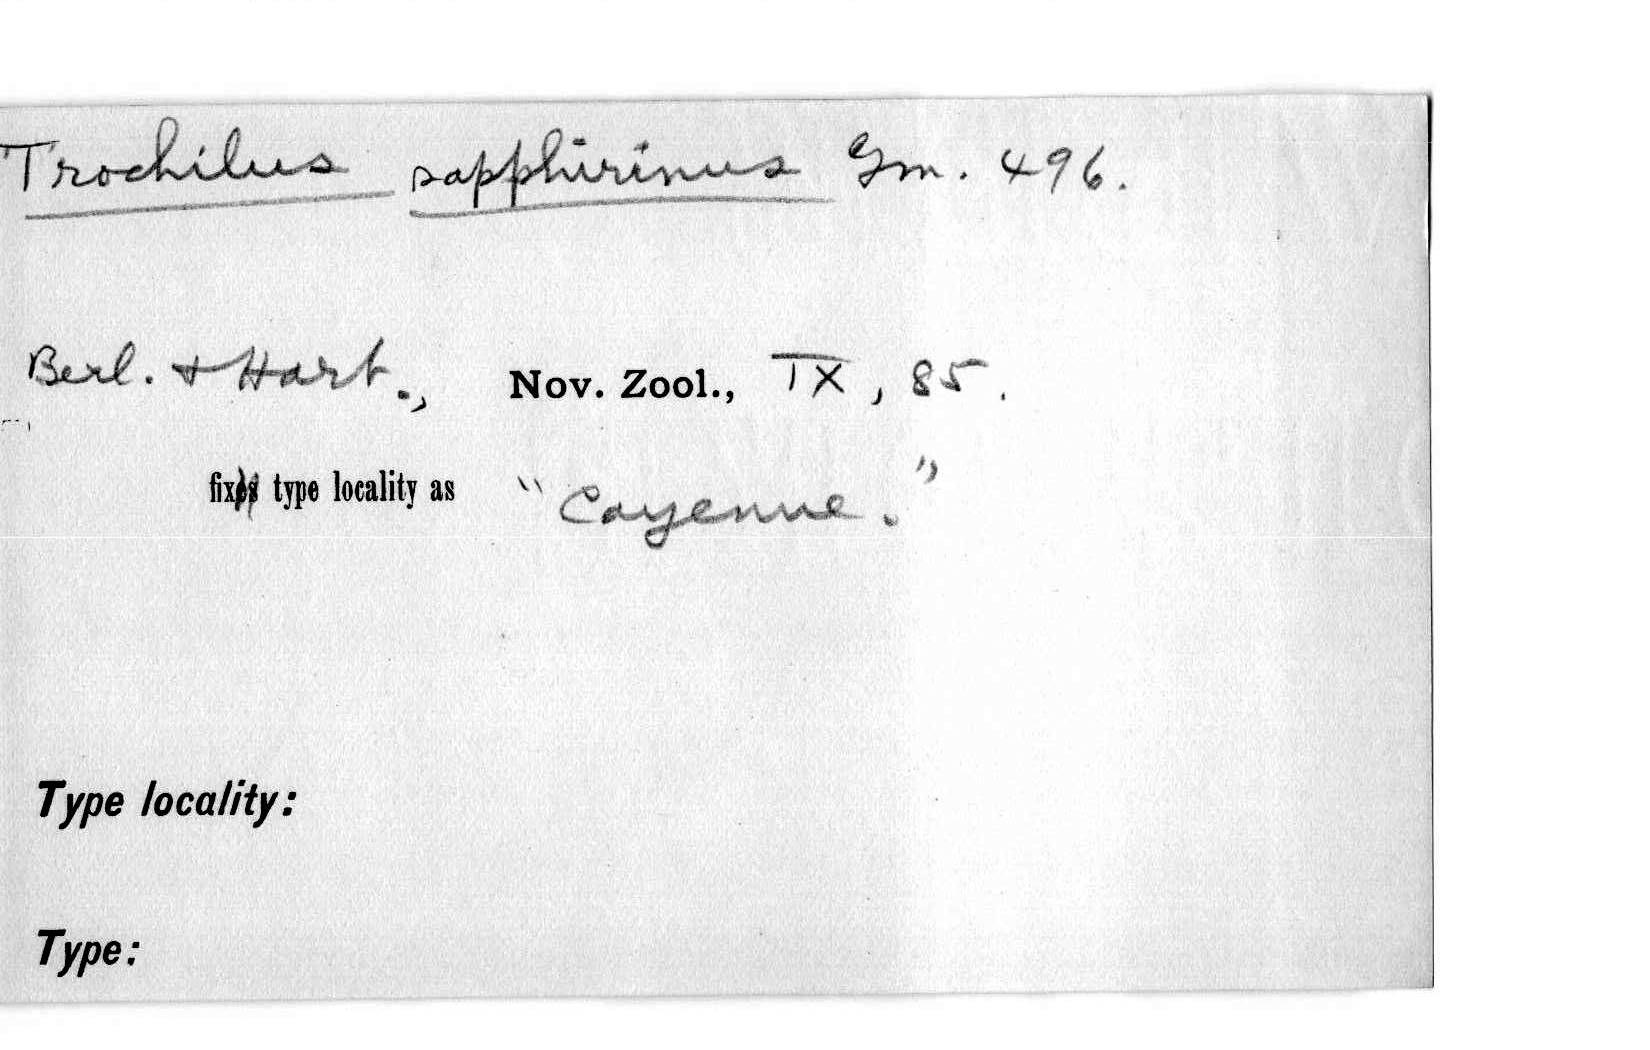 Trochilus sapphirinus Gm. 496.
Berl. + Hart., Nov. Zool., IX, 85.
fix type locality as "Cayenne."
Type locality:
Type: